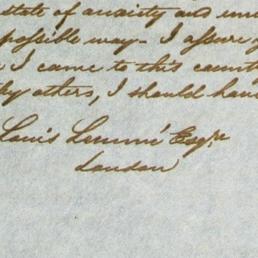 state of anxiety and
possible way. I assure
I came to this
by others, I should
Louis Lemmé Esqre
London